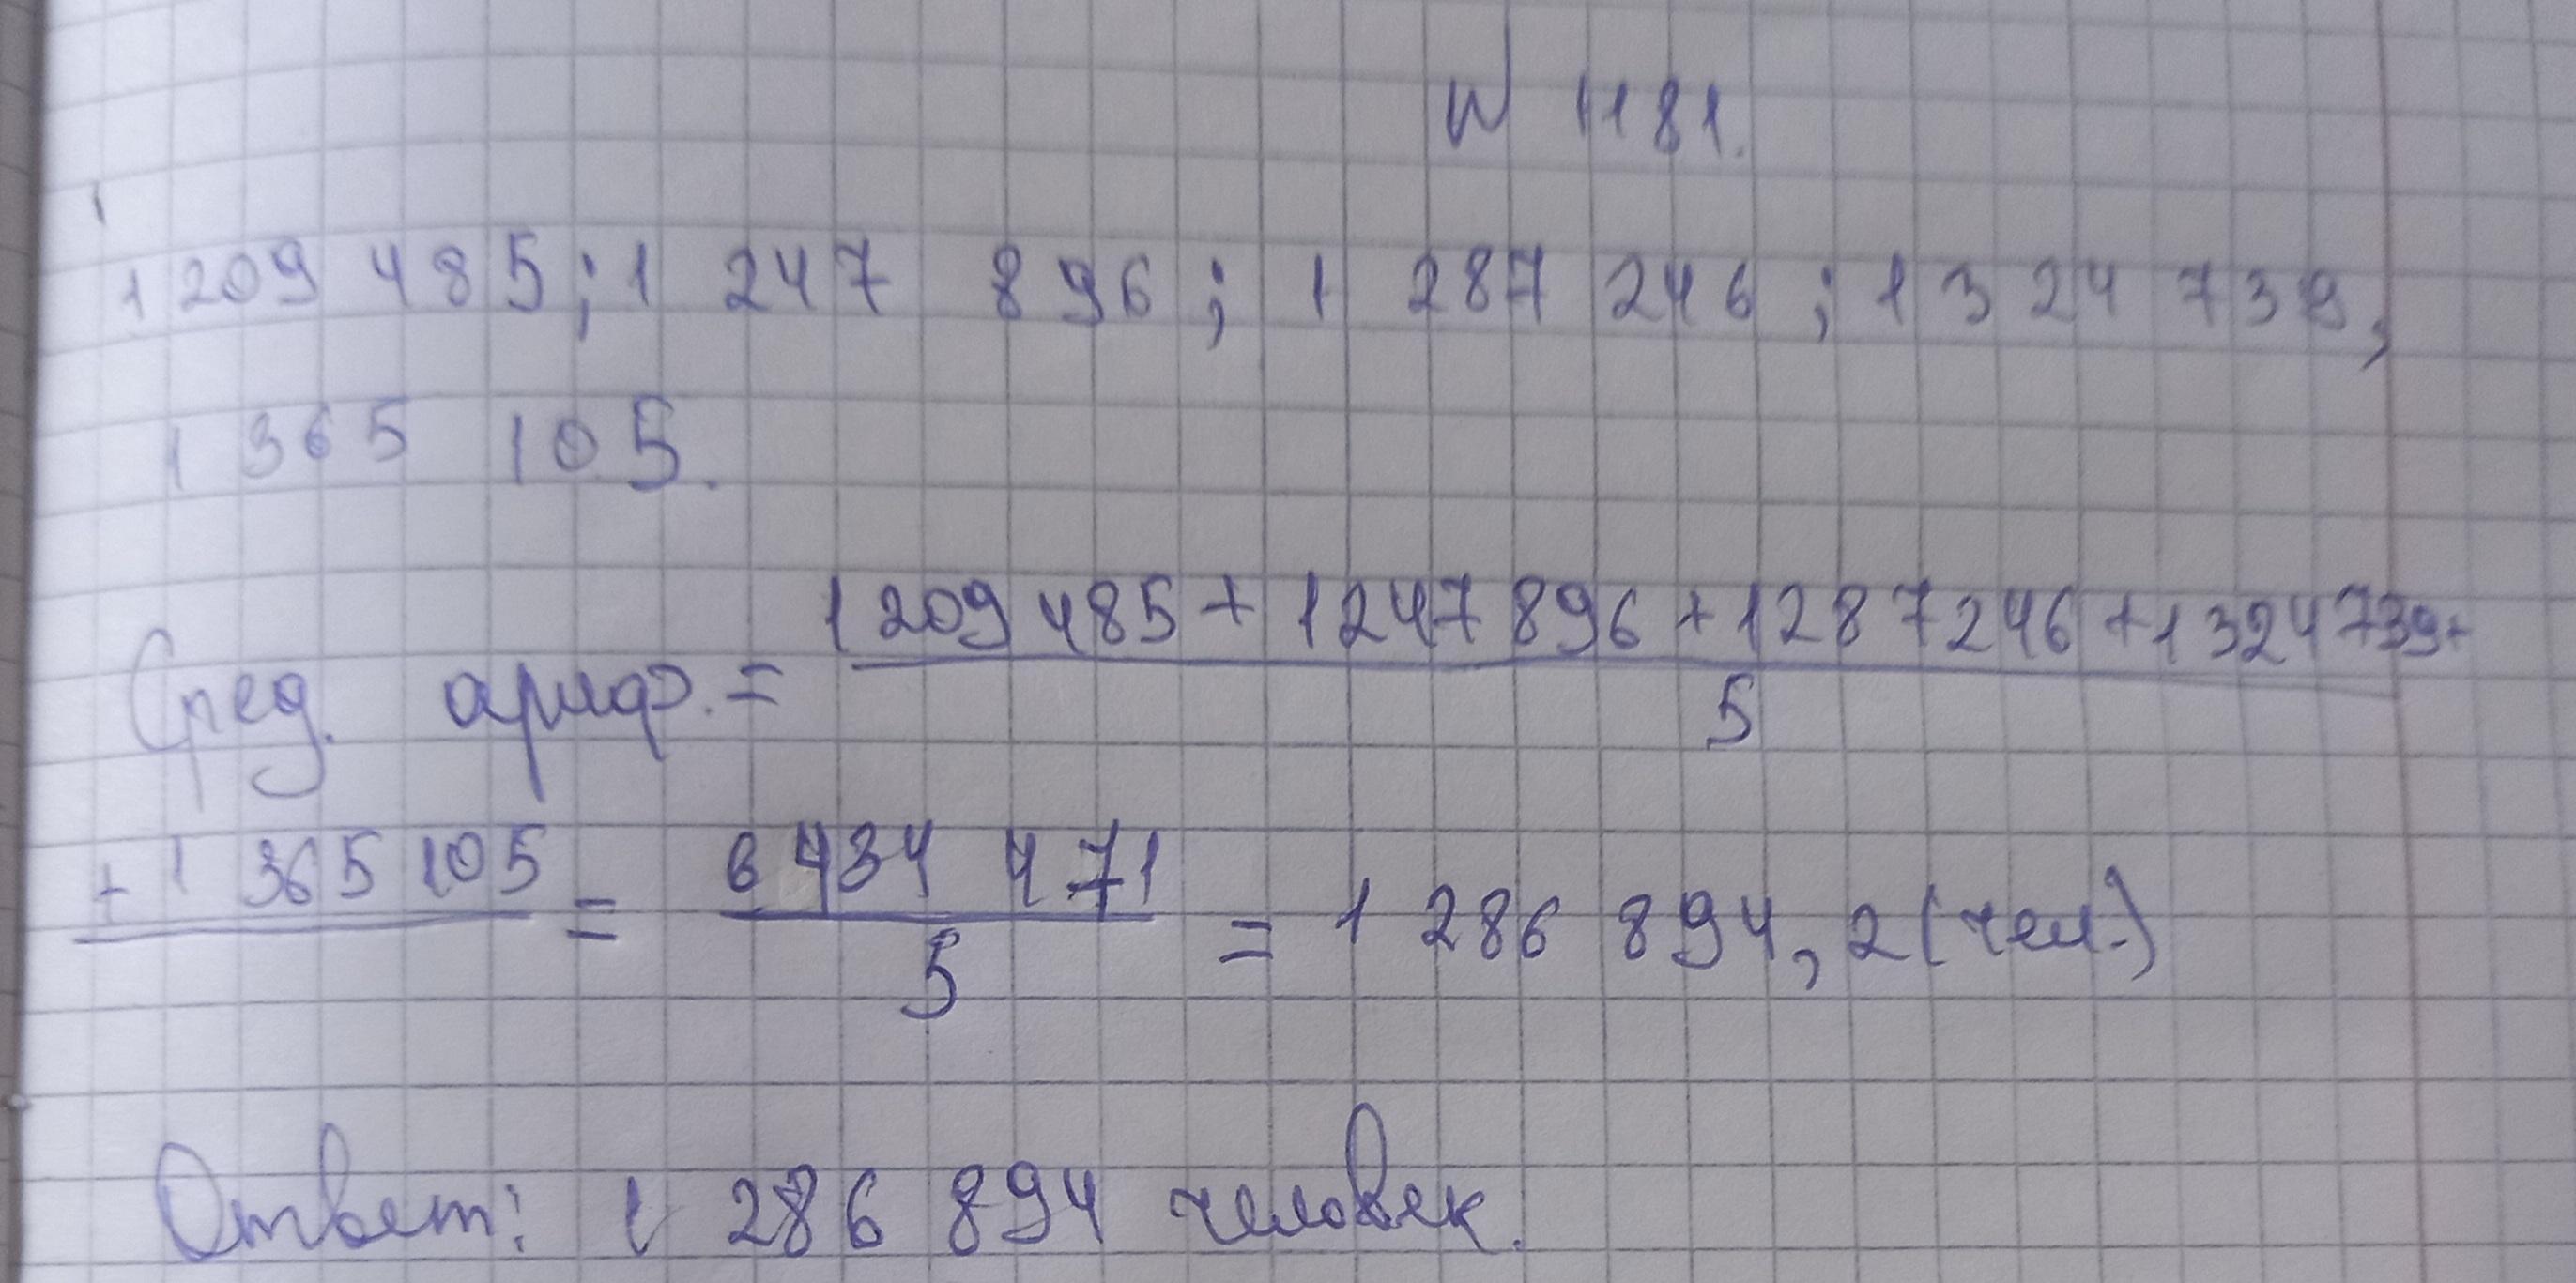 N 1181.
1 209 485; 1 247 896; 1 287 246; 1 324 739,
1 365 105.
Сред. ариф. = 1 209 485 + 1 247 896 + 1 287 246 + 1 324 739 +
5
+ 1 365 105 = 6 434 471 = 1 286 894,2 (чел.)
5
Ответ: 1 286 894 человек.